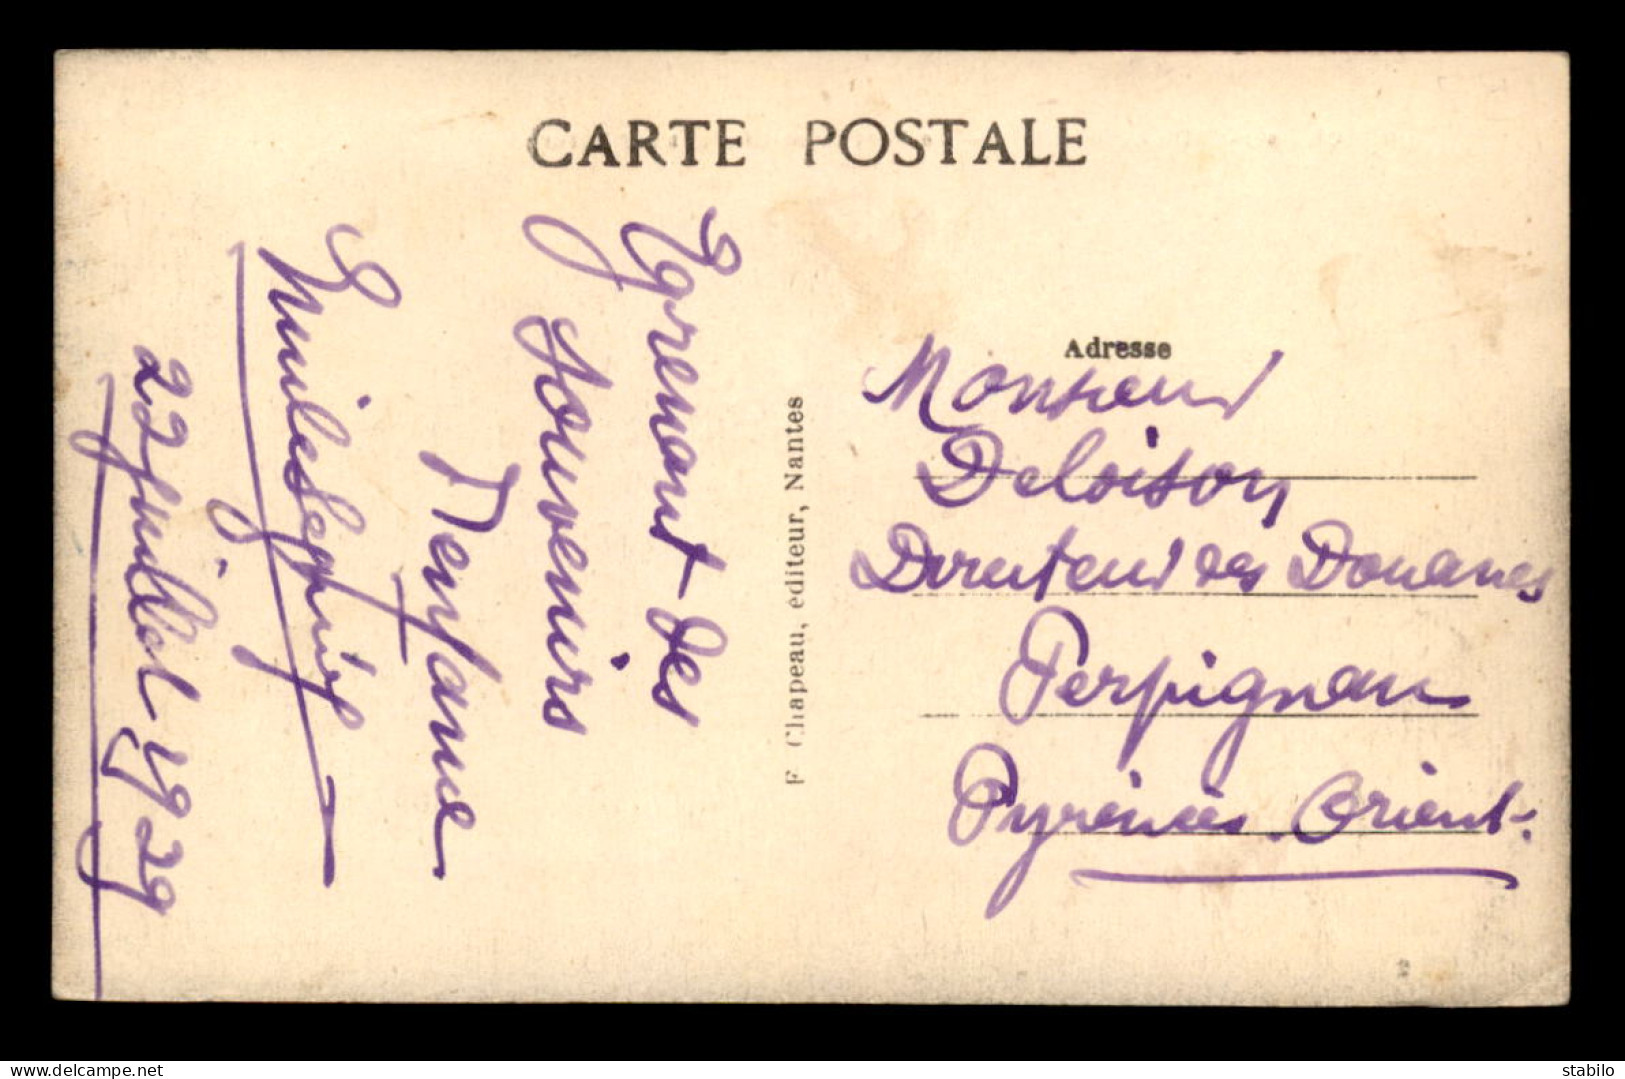 CARTE POSTALE
Egrenant des
Souvenirs
d'enfance
22 juillet 1929
F Chapeau, éditeur, Nantes
Adresse
Monsieur
Deloison
Directeur des Douanes
Perpignan
Pyrénées-Orient.
www.delcampe.net
stabilo